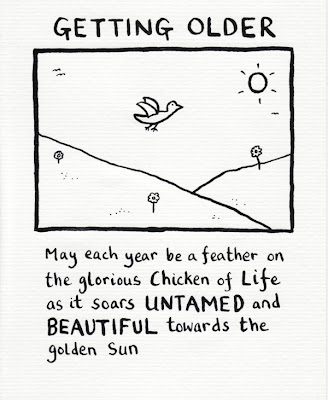 GETTING OLDER
May each year be a feather on
the glorious Chicken of Life
as it soars UNTAMED and
BEAUTIFUL towards the
golden Sun